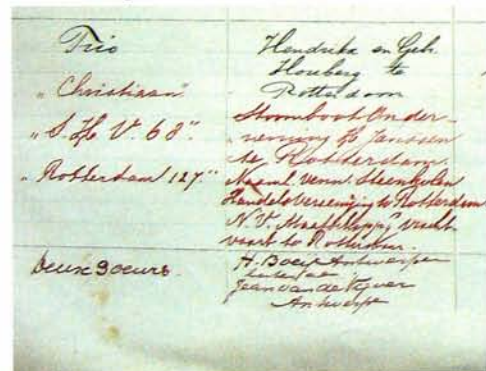 Trio
Hendrika en Gebr.
te
Rotterdam
"Christiaan"
Stoomboot Onder-
"S. H. V. 68".
neming Janssen
te Rotterdam.
"Rotterdam 127."
Naaml. Venn. Steenkolen
Handelsvereeniging te Rotterdam
N.V. Maatschappij vracht-
vaart te Rotterdam.
Deux Soeurs.
H. Boeye Antwerpen
Jean van de Vyver
Antwerpe